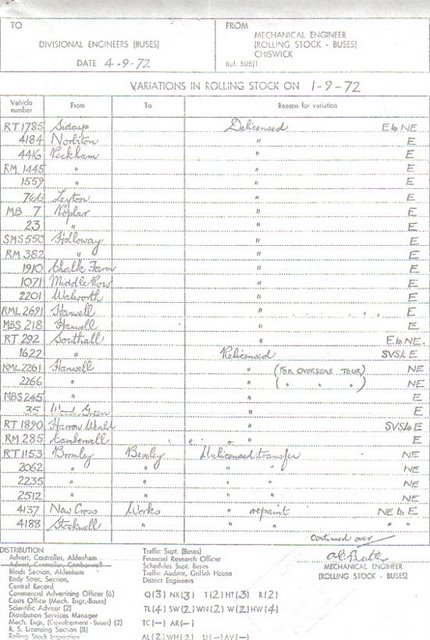 TO
FROM
DIVISIONAL ENGINEERS (BUSES)
MECHANICAL ENGINEER
(ROLLING STOCK - BUSES)
CHISWICK
DATE 4-9-72
Ref. 508/1
VARIATIONS IN ROLLING STOCK ON 1-9-72
Vehicle number From To Reason for variation
RT 1785 Sidcup Delicensed E to NE
4184 Norbiton " E
4416 Peckham " E
RM 1445 " " E
1559 " " E
Leyton " E
MB 7 Poplar " E
23 " " E
SMS 550 Holloway " E
RM 382 " " E
1910 Chalk Farm " E
1071 Middle Row " E
2201 Walworth " E
RML 2691 Hanwell " E
MBS 218 Hanwell " E
RT 292 Southall " E to NE.
1622 " Relicensed SVS to E
RML 2261 Hanwell " (FOR OVERSEAS TOUR) NE
2266 " " ( " " " ) NE
MBS 245 " " E
35 Wood Green " E
RT 1890 Harrow Weald " SVS to E
RM 285 Camberwell " E
RT 1153 Bromley Bexley Unlicensed transfer NE
2062 " " " " NE
2235 " " " " NE
2512 " " " " NE
4137 New Cross Works " repaint NE to E
4188 Stockwell " " " "
Continued over
DISTRIBUTION
Advert. Controller, Aldenham
Advert. Controller, Camberwell
Blinds Section, Aldenham
Body Spec. Section,
Central Record
Commercial Advertising Office (6)
Costs Office (Mech. Engr.-Buses)
Scientific Advisor (2)
Distribution Services Manager
Mech. Engr. (Development - Buses) (2)
R. S. Licensing Section (3)
Rolling Stock Inspection
Traffic Supt. (Buses)
Financial Research Officer
Schedules Supt. Buses
Traffic Auditor, Griffith House
District Engineers
Q(3) NX(3) T(2) HT(3) R(2)
TL(4) SW(2) WN(2) W(2) HW(4)
TC(-) AR(-)
AL(2) WH(2) U(-) AV(-)
MECHANICAL ENGINEER
(ROLLING STOCK - BUSES)